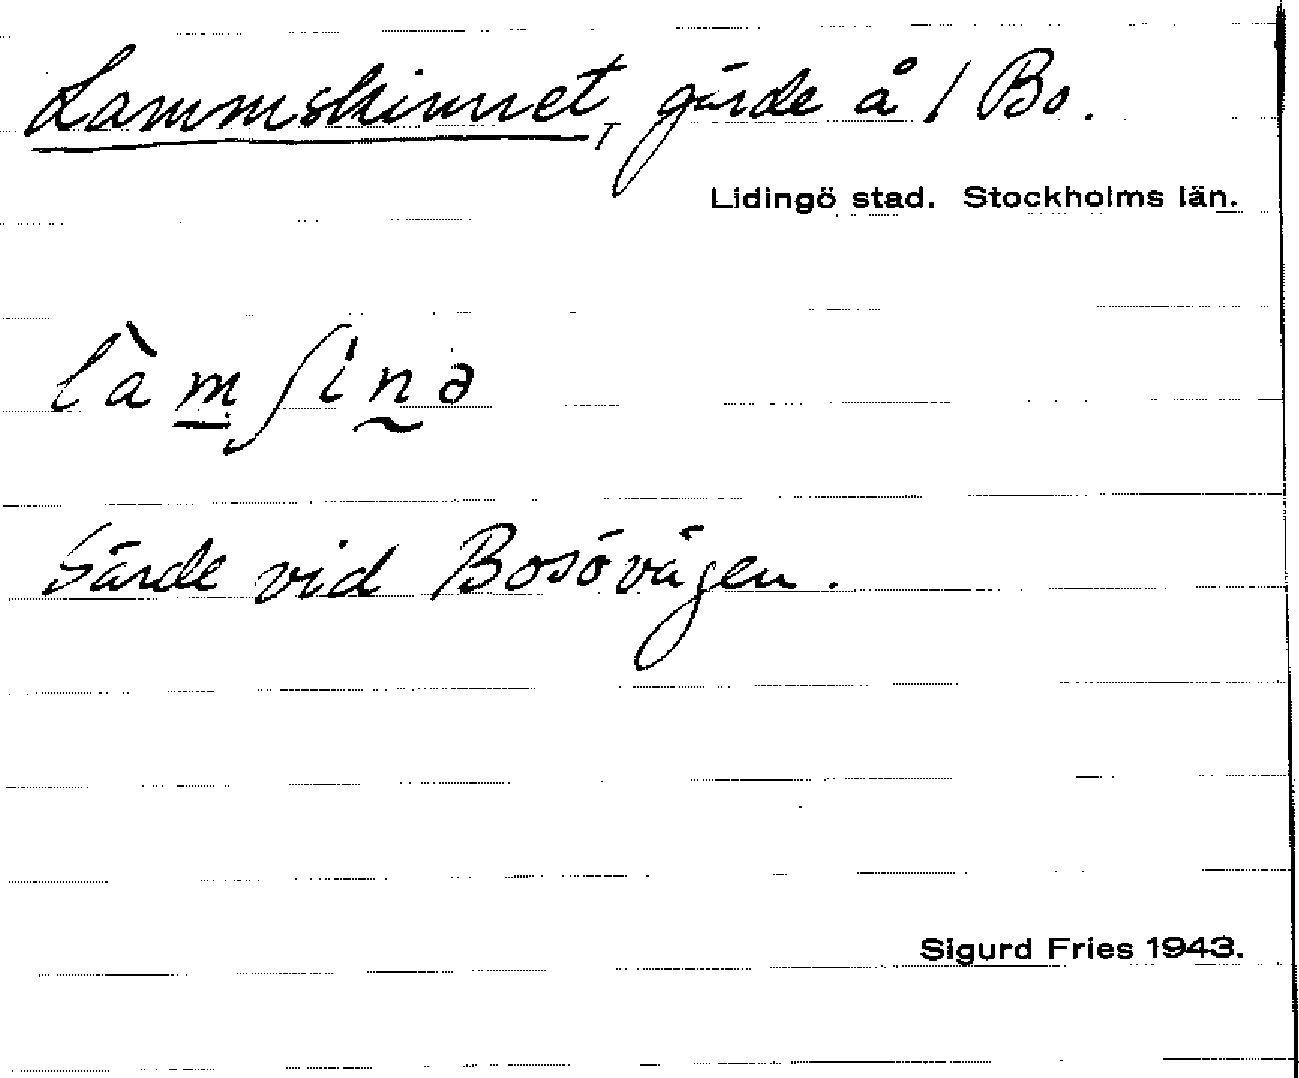 Lammskinnet, gärde å 1 Bo.
Lidingö stad. Stockholms län.
làm̲ʃin̰ə
Gärde vid Bosövägen.
Sigurd Fries 1943.